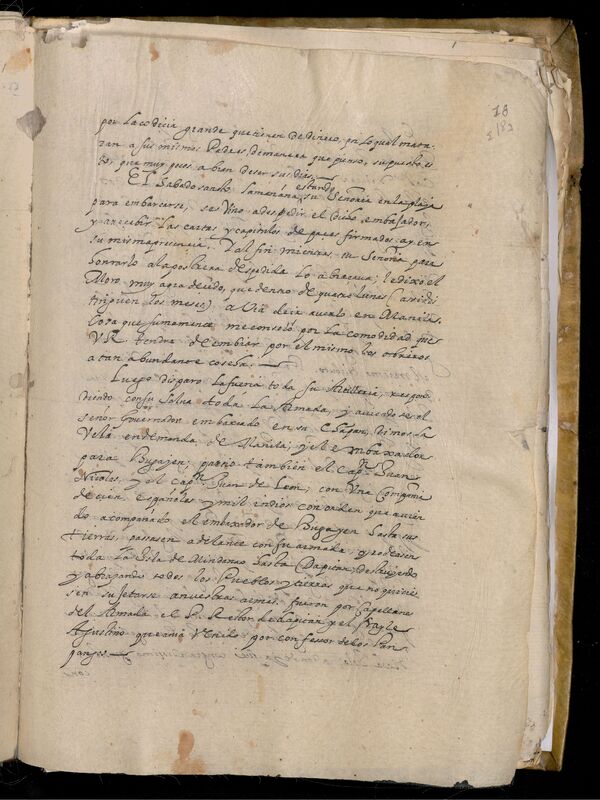 18
por la codicia grande que tienen de dinero, por lo qual mata-
ran a sus mismos Padres, demanera que pienso, supuesto es-
to, que muy pocos a bien deser sus dias.
El Sabado sancto la mañana, estando su Señoria en la playa
para embarcarse, se vino a despedir el dicho embaxador,
y a recebir las cartas y capitulos de paces firmados ay en
su misma presencia. Y al fin mientras, su Señoria para
honrarlo a la postrera despedida lo abraçava; le dixo el
Moro muy agradecido, que dentro de quatro Lunas (assi dis
tinguen los meses) a Dia de ir a verlo en Manila.
Cosa que sumamente me consolo por la comodidad que
VR tendra de embiar por el mismo los obreros
a tan abundante cosecha.
Luego disparo la fuerça toda su Artilleria, respon
diendo con su salva toda la Armada, y aviendose el
señor Governador embarcado en su Chapan, dimos la
Vela en demanda de Manila; y el embaxador
para Bugayen; partio tambien el Cap.n Juan
Nicolas, y el Cap.n Juan de Leon, con Una Compañia
de cien Españoles y mil indios con orden que avien
do acompañado el embaxador de Bugayen hasta sus
tierras, passasen adelante con su armada y rodeasen
toda la Isla de Mindanao hasta Dapitan, destruyendo
y abrasando todos los Pueblos y tierras que no quisies
sen sujetarse a nuestras armas. fueron por Capellanes
del Armada el P. Retor de Dapitan y el frayle
Agustino que avia Venido por confessor de los Pam
pangos.